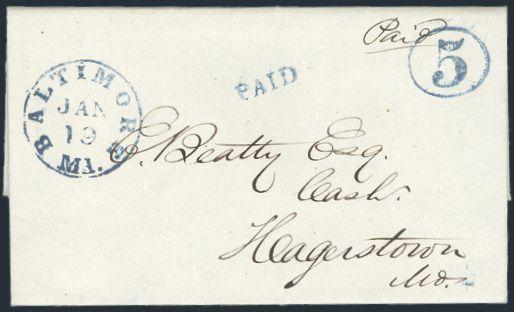 Paid
5
PAID
BALTIMORE
JAN
19
MD.
E. Beatty Esq.
Cash.
Hagerstown
Md.